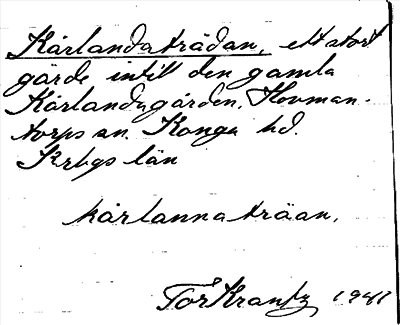 Kårlandaträdan, ett stort
gärde intill den gamla
Kårlandagården. Hovman-
torps sn. Konga hd.
Krbgs län
kårlannaträan.
Tor Krantz 1941